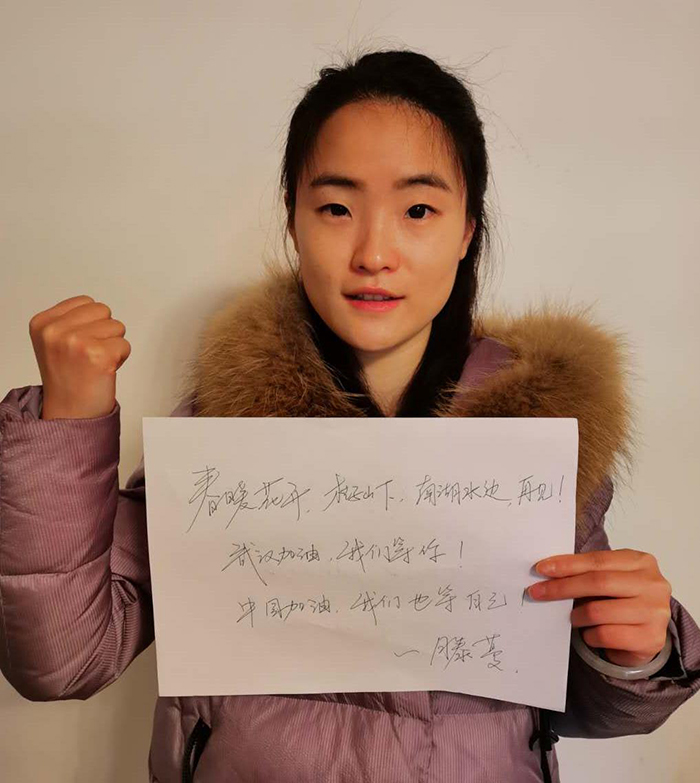 春暖花开,桂子山下,南湖水边,再见!
武汉加油,我们等你!
中国加油,我们也等自己!
—滕蔓.